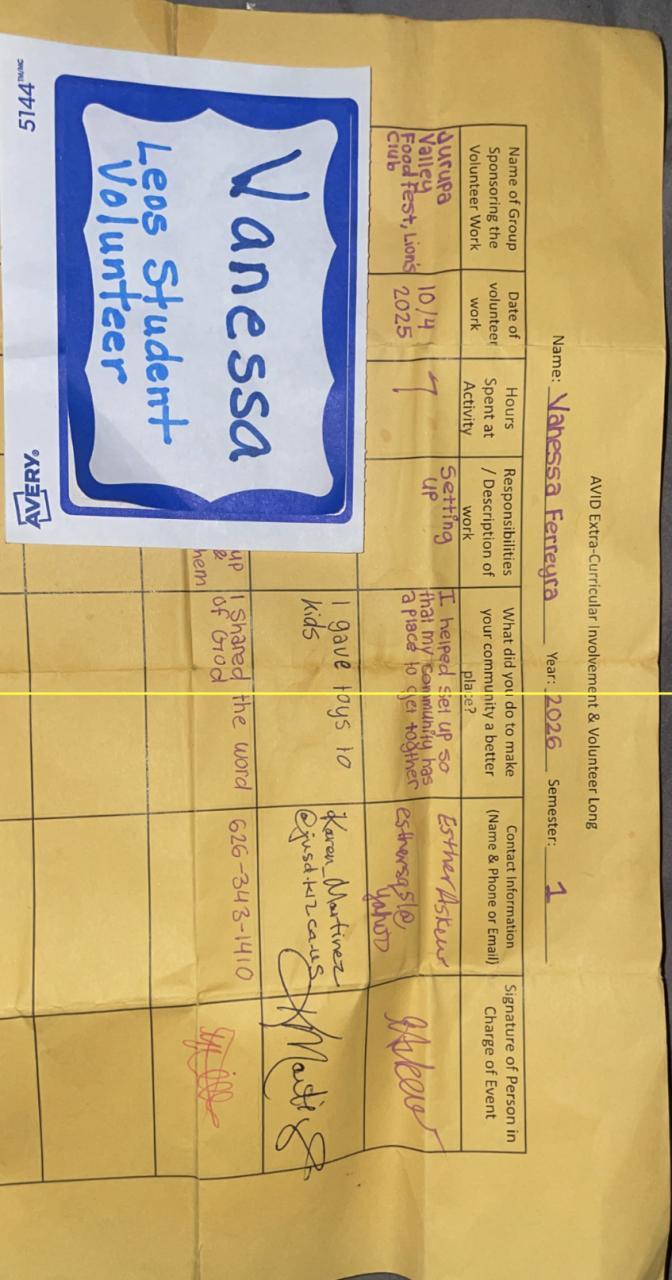 AVID Extra-Curricular Involvement & Volunteer Long
Name: Vanessa Ferreyra Year: 2026 Semester: 1
Name of Group
Sponsoring the
Volunteer Work
Date of
volunteer
work
Hours
Spent at
Activity
Responsibilities
/ Description of
work
What did you do to make
your community a better
place?
Contact Information
(Name & Phone or Email)
Signature of Person in
Charge of Event
Jurupa
Valley
Food fest, Lion's
Club
10/4
2025
7
Setting
up
I helped set up so
that my community has
a place to get together
Esther Askew
Askew
I gave toys to
kids
Karen_Martinez
@jusd.k12.ca.us
up
&
hem
I shared the word
of God
626-343-1410
Vanessa
Leos Student
Volunteer
5144
AVERY